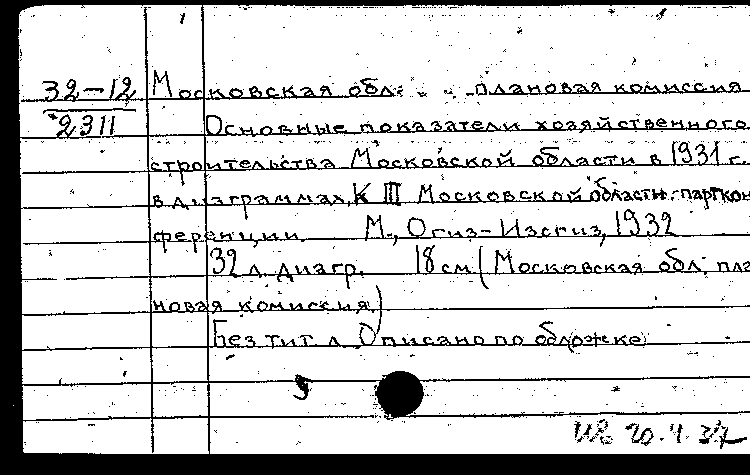 32-12
2311
Московская обл. плановая комиссия
Основные показатели хозяйственного
строительства Московской области в 1931 г.
в диаграммах, К III Московской области. парткон
ференции. М., Огиз-Изогиз, 1932
32 л. диагр. 18 см (Московская обл. пла
новая комиссия)
Без тит. л. Описано по обложке
20.4.37